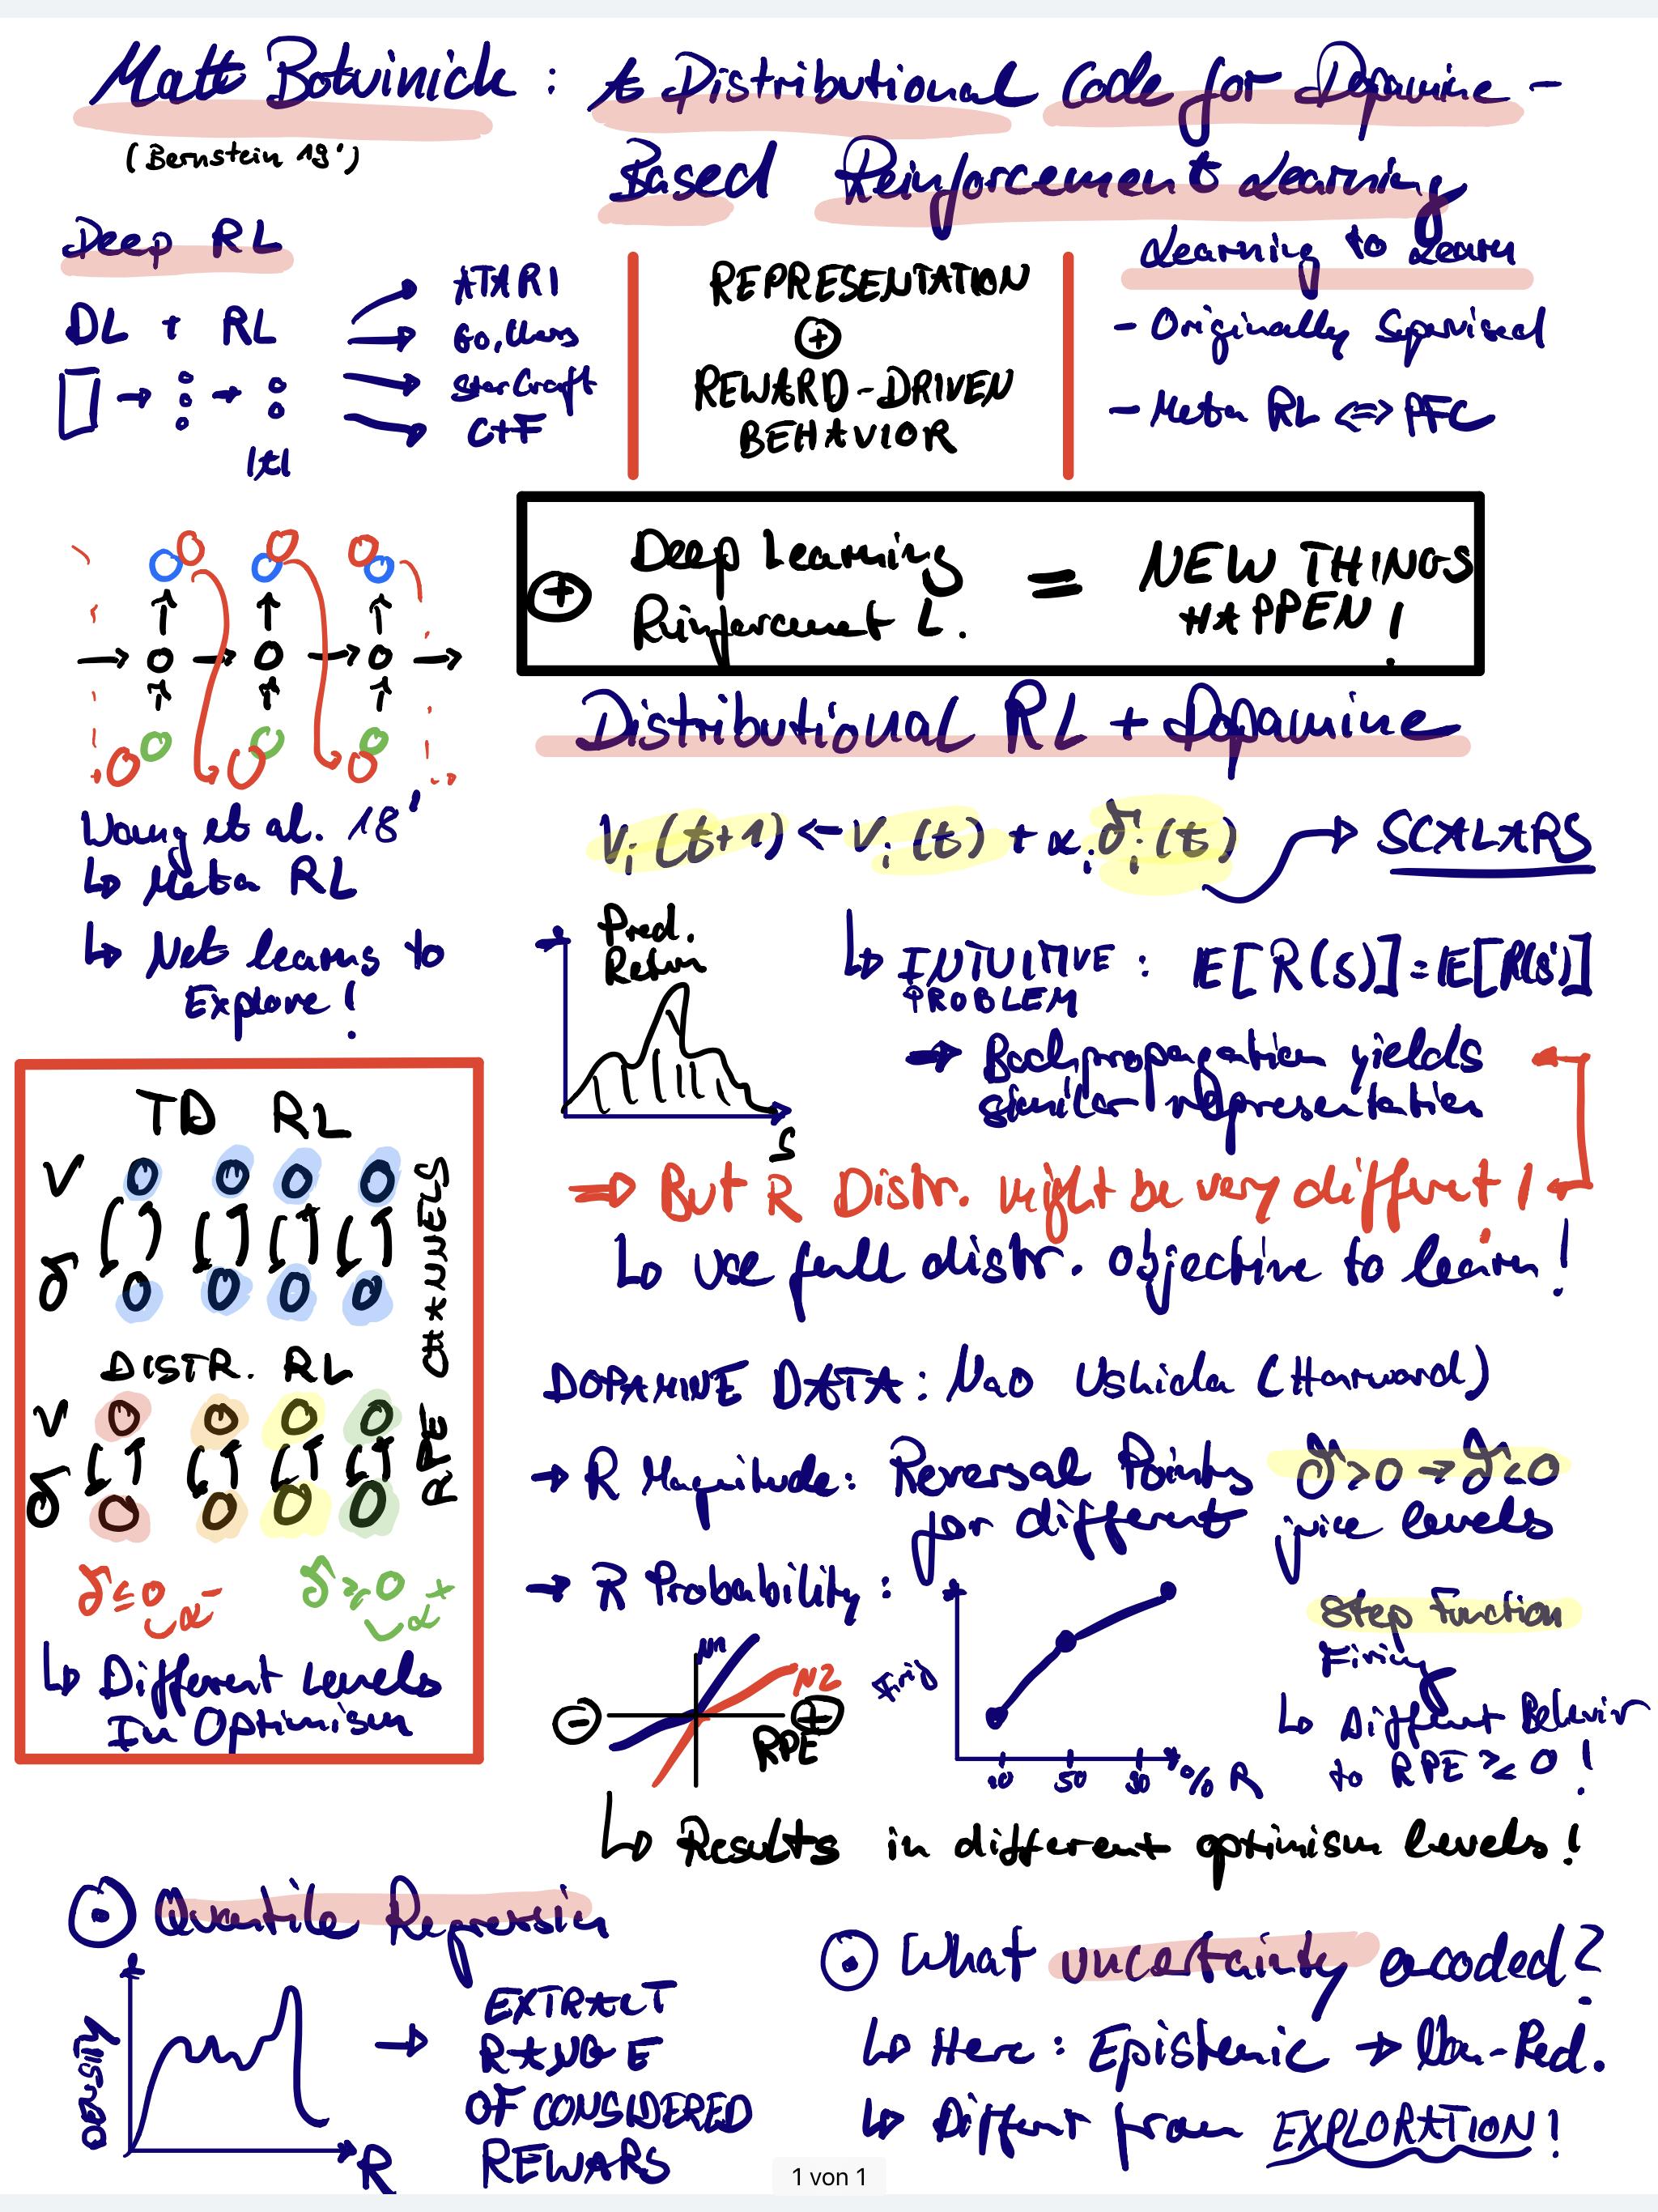 Matt Botvinick : A Distributional Code for Dopamine -
Based Reinforcement Learning
(Bernstein 19')
Deep RL
DL + RL
|A|
ATARI
Go, Chess
StarCraft
CTF
REPRESENTATION
+
REWARD-DRIVEN
BEHAVIOR
Learning to Learn
- Originally Spervised
- Meta RL <=> PFC
+ Deep Learning
Reinforcement L.
= NEW THINGS
HAPPEN!
Wang et al. 18'
↳ Meta RL
↳ Net learns to
Explore!
Distributional RL + Dopamine
Vi (t+1) <- Vi (t) + αi δi (t) → SCALARS
Pred.
Return
S
↳ INTUITIVE : E[R(s)] = E[R(s')]
PROBLEM
⇒ Backpropagation yields
similar representation
⇒ But R Distr. might be very different!
↳ Use full distr. Objective to learn!
TD RL
V
δ
DISTR. RL
V
δ
RPE CHANNELS
δ≤0 α-
δ≥0 α+
↳ Different Levels
In Optimism
DOPAMINE DATA : Nao Ushida (Harward)
→ R Magnitude: Reversal Points δ>0 → δ<0
for different juice levels
→ R Probability :
-
+
N1
N2
RPE
10 50 90 % R
Step Function
Firing
↳ Different Behavior
to RPE ≷ 0 !
↳ Results in different optimism levels!
⊙ Quantile Regression
DENSITY
R
→ EXTRACT
RANGE
OF CONSIDERED
REWARS
⊙ What uncertainty encoded?
↳ Here : Epistemic → Non-Red.
↳ Different from EXPLORATION!
1 von 1